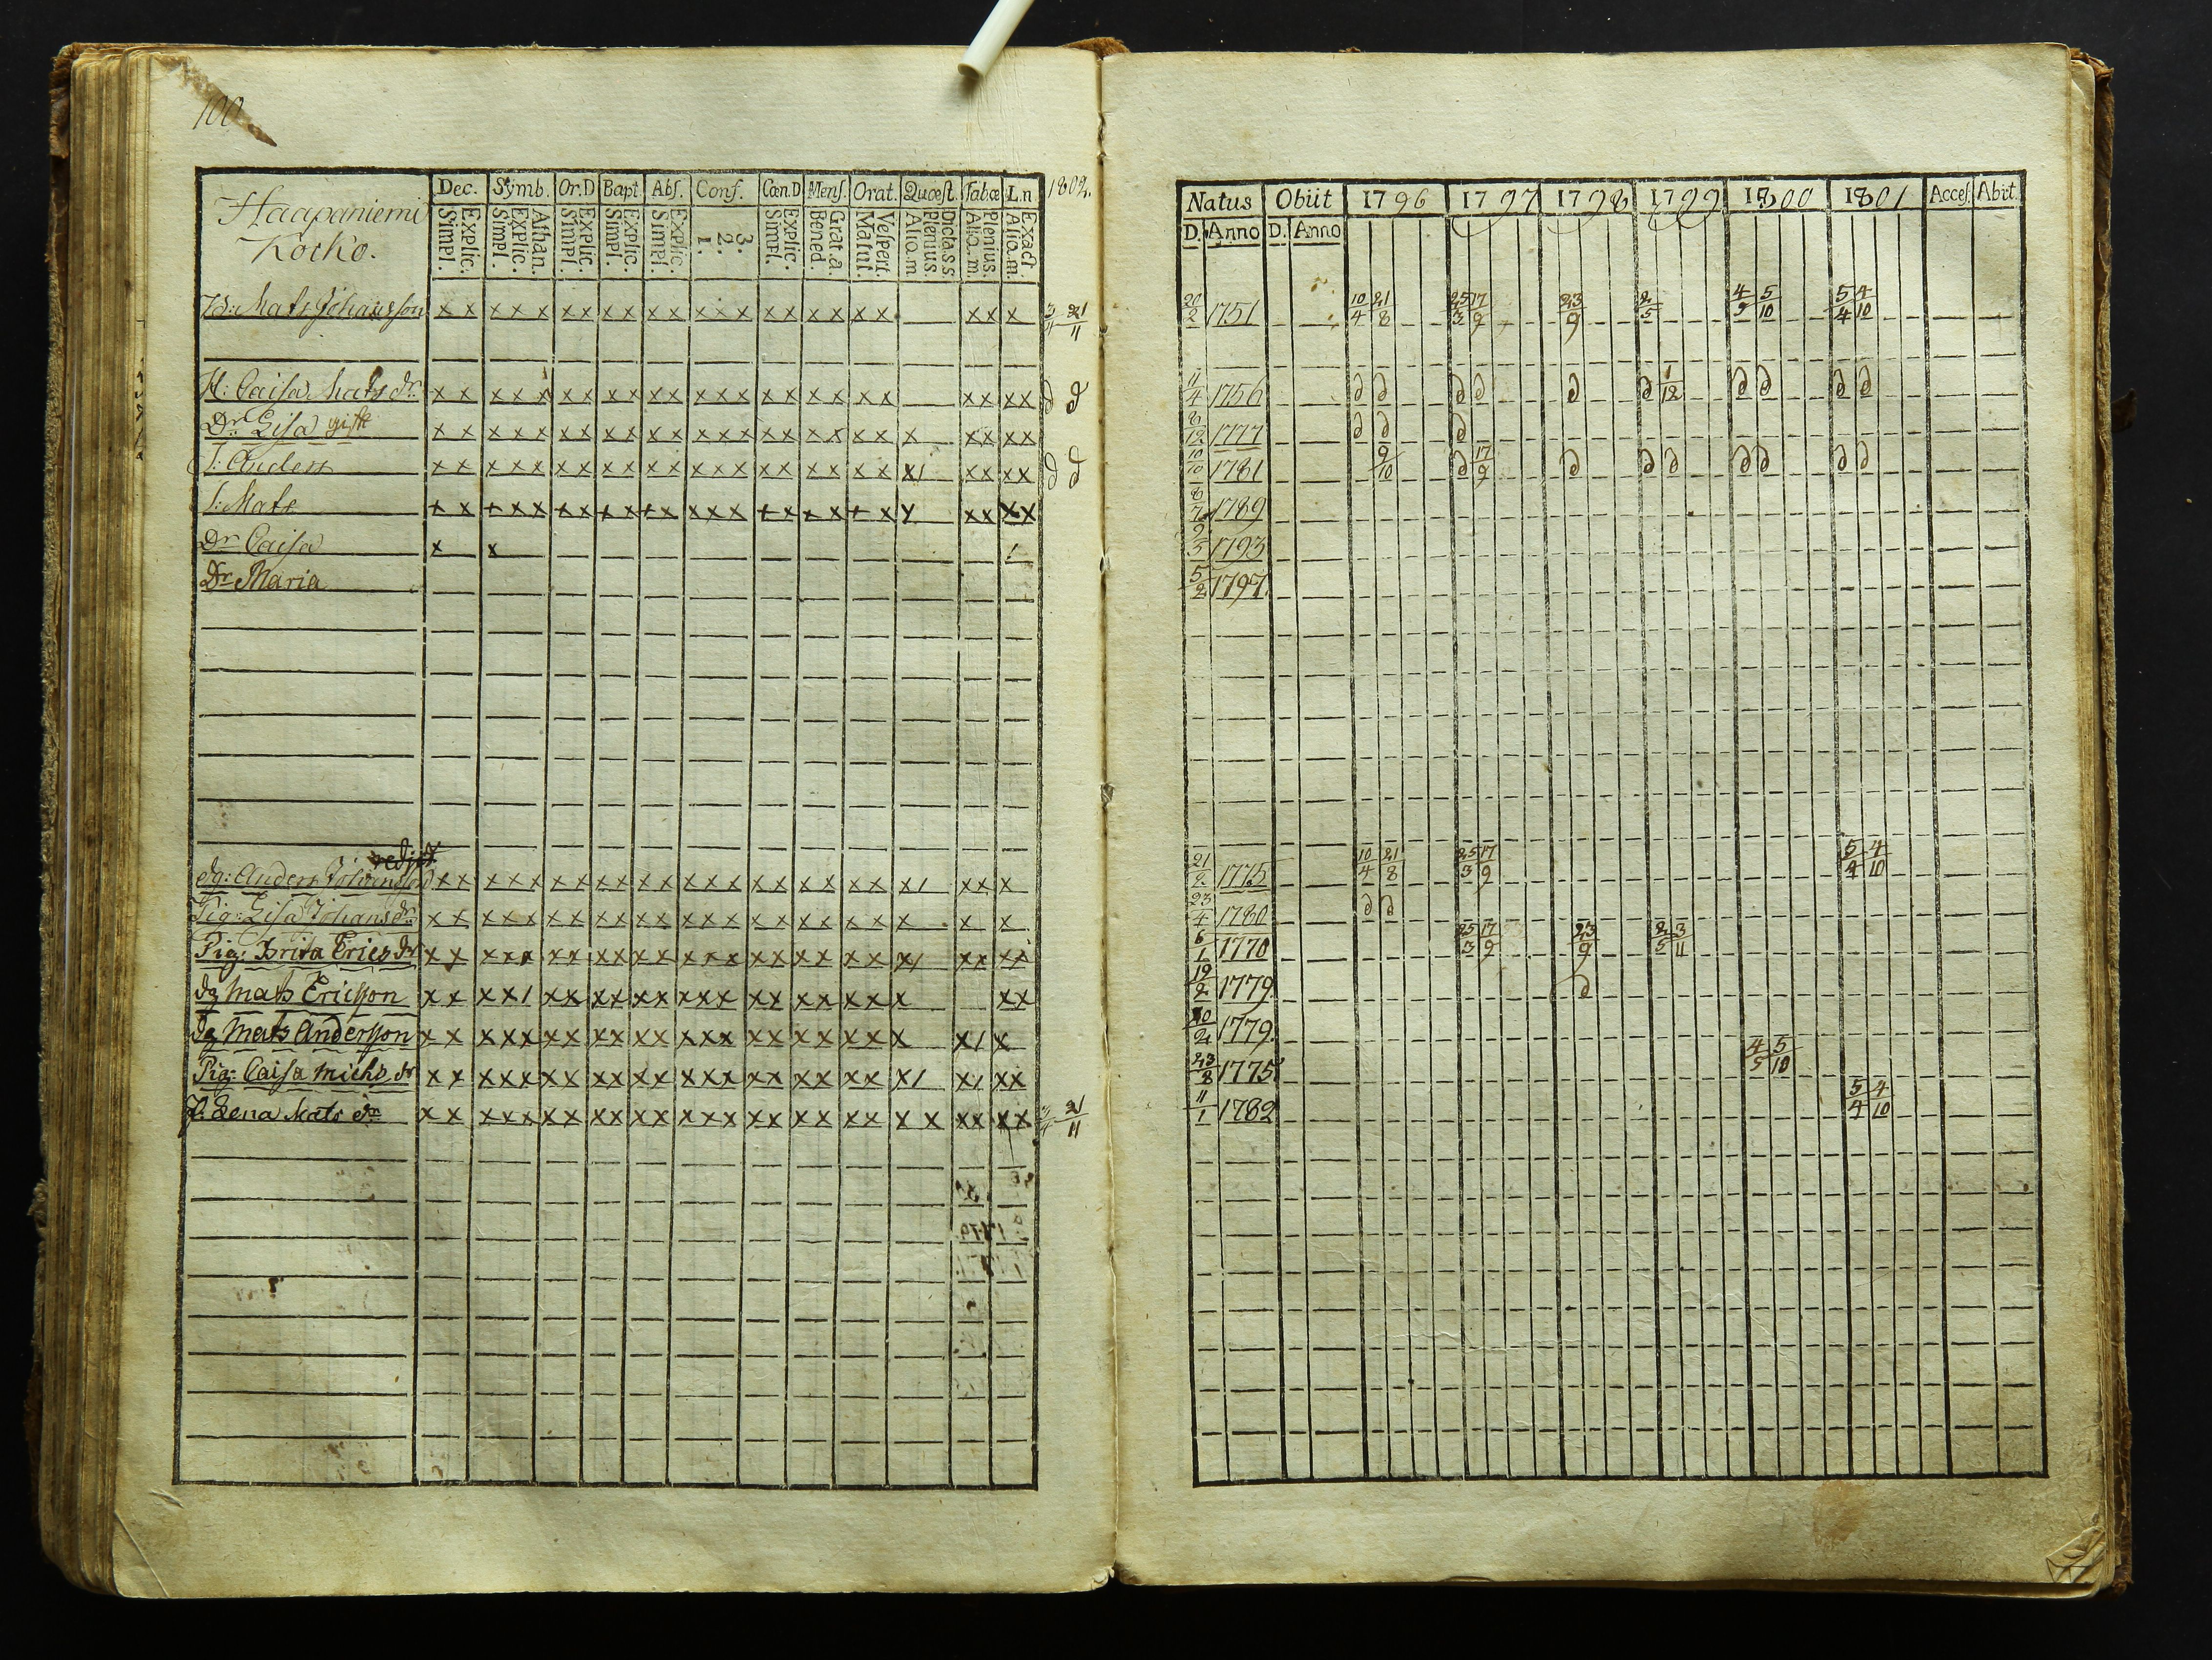 100
Haapaniemi
Kocko.
Dec. Symb. Or.D Bapt Abs. Conf. Cœn.D Mens. Orat. Quæst. Tabæ L.n 1802.
Simpl. Explic. Simpl. Explic. Athan. Simpl. Explic. Simpl. Explic. Simpl. Explic. 1. 2. 3. Simpl. Explic. Bened. Grat.a. Matut. Vespert. Aliq.m Plenius Aliq.m. Plenius. Aliq.m. Exact.
Natus Obiit 1796 1797 1798 1799 1800 1801 Acces. Abit.
D. Anno D. Anno
B: Mats Johansson x x x x x x x x x x x x x x x x x x x x x x x 3/4 21/11 20/2 1751 10/4 21/8 25/3 17/9 23/9 2/5 4/5 5/10 5/4 4/10
H: Caisa Mats dr x x x x x x x x x x x x x x x x x x x x x x x x ∂ ∂ 11/4 1756 ∂ ∂ ∂ ∂ ∂ ∂ 1/12 ∂ ∂ ∂ ∂
Dr Lisa gift x x x x x x x x x x x x x x x x x x x x x x x x x 8/12 1777 ∂ ∂ ∂
S: Anders x x x x x x x x x x x x x x x x x x x x x/ x x x x ∂ ∂ 10/10 1781 9/10 ∂ 17/9 ∂ ∂ ∂ ∂ ∂ ∂ ∂
S: Mats x x x x x x x x x x x x x x x x x x x x x x x x x 8/7 1789
Dr Caisa x x / 9/3 1793
Dr Maria 5/2 1797.
dg: Anders Johansson x x x x x x x x x x x x x x x x x x x x x/ x x x 21/2 1775 10/4 21/8 25/3 17/9 5/4 4/10
Pig: Lisa Johans dr x x x x x x x x x x x x x x x x x x x x x x x 23/4 1780 ∂ ∂
Pig: Brita Erics dr x x x x x x x x x x x x x x x x x x x x x/ x x x x 6/1 1770 25/3 17/9 23/9 2/5 3/11
dg Mats Ericsson x x x x / x x x x x x x x x x x x x x x x x x 19/2 1779. ∂
dg Mats Andersson x x x x x x x x x x x x x x x x x x x x x x/ x 10/2 1779.
Pig: Caisa Michs dr x x x x x x x x x x x x x x x x x x x x x/ x/ x x 23/8 1775. 4/5 5/10
J: Lena Mats dr x x x x x x x x x x x x x x x x x x x x x x x x x x 3/4 21/11 11/1 1782 5/4 4/10